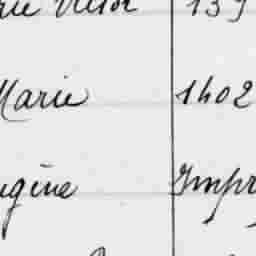 Victor 139
Marie 1402
Eugène Impr